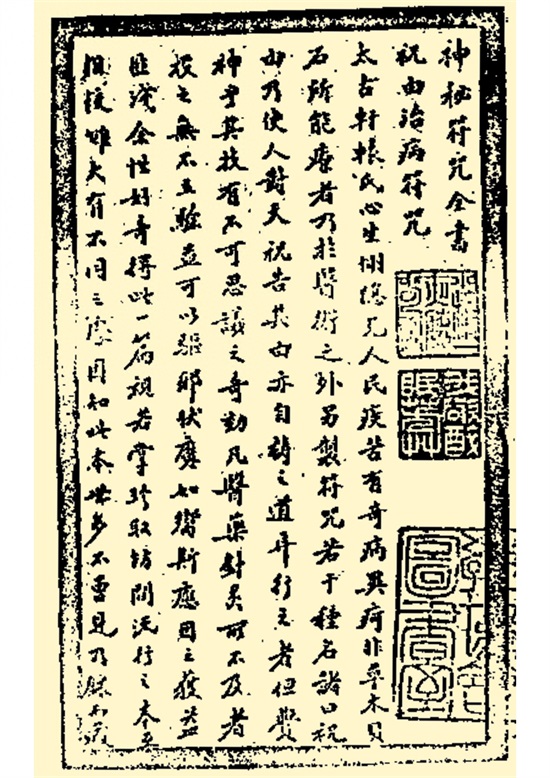 神秘符咒全書
祝由治病符咒
太古軒轅氏心生惻隱見人民疾苦有奇病異疴非草木貝
石所能療者乃於醫術之外另製符咒若干種名諸曰祝
由乃使人對天祝告其由亦自禱之道耳行之者但費
神其技有不可思議之奇勛凡醫藥針灸所不及者
投之無不立驗並可以驅邪伏魔如響斯應因之獲益
匪淺余性好奇得此一篇視若掌珍取坊間流行之本互
相校大有不同之處固知此本世多不見乃